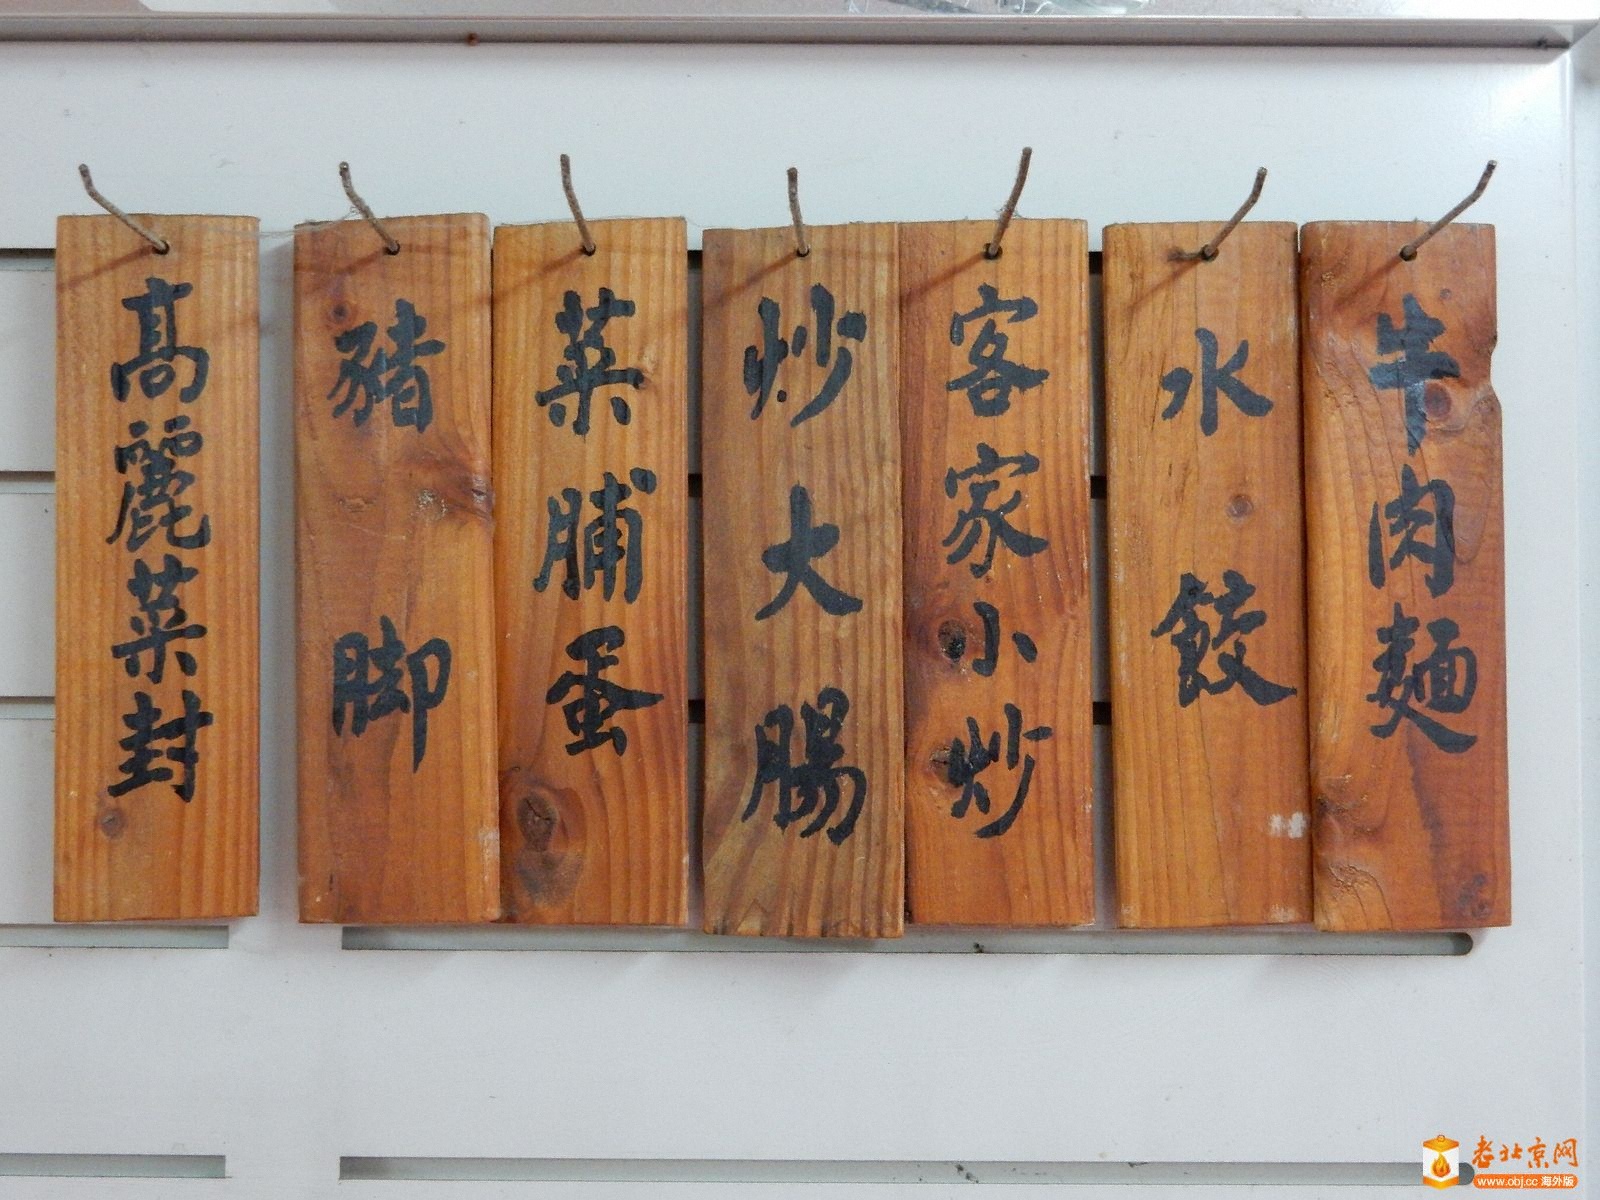 牛肉麵
水餃
客家小炒
炒大腸
菜脯蛋
豬脚
髙麗菜封
老北京网
www.obj.cc 海外版